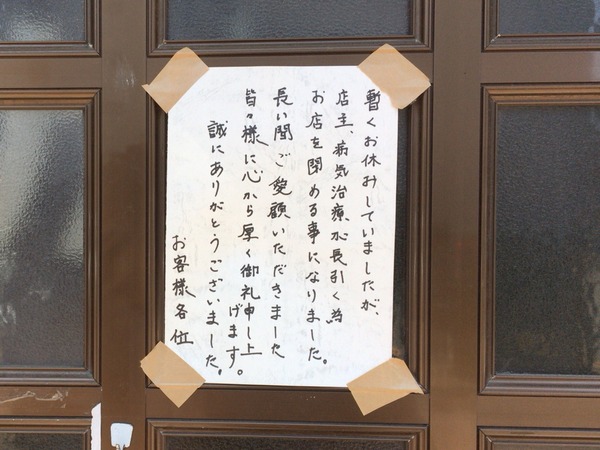 暫くお休みしていましたが、
店主、病気治療が長引く為
お店を閉める事になりました。
長い間ご愛顧いただきました
皆々様に心から厚く御礼申し上
げます。
誠にありがとうございました。
お客様各位